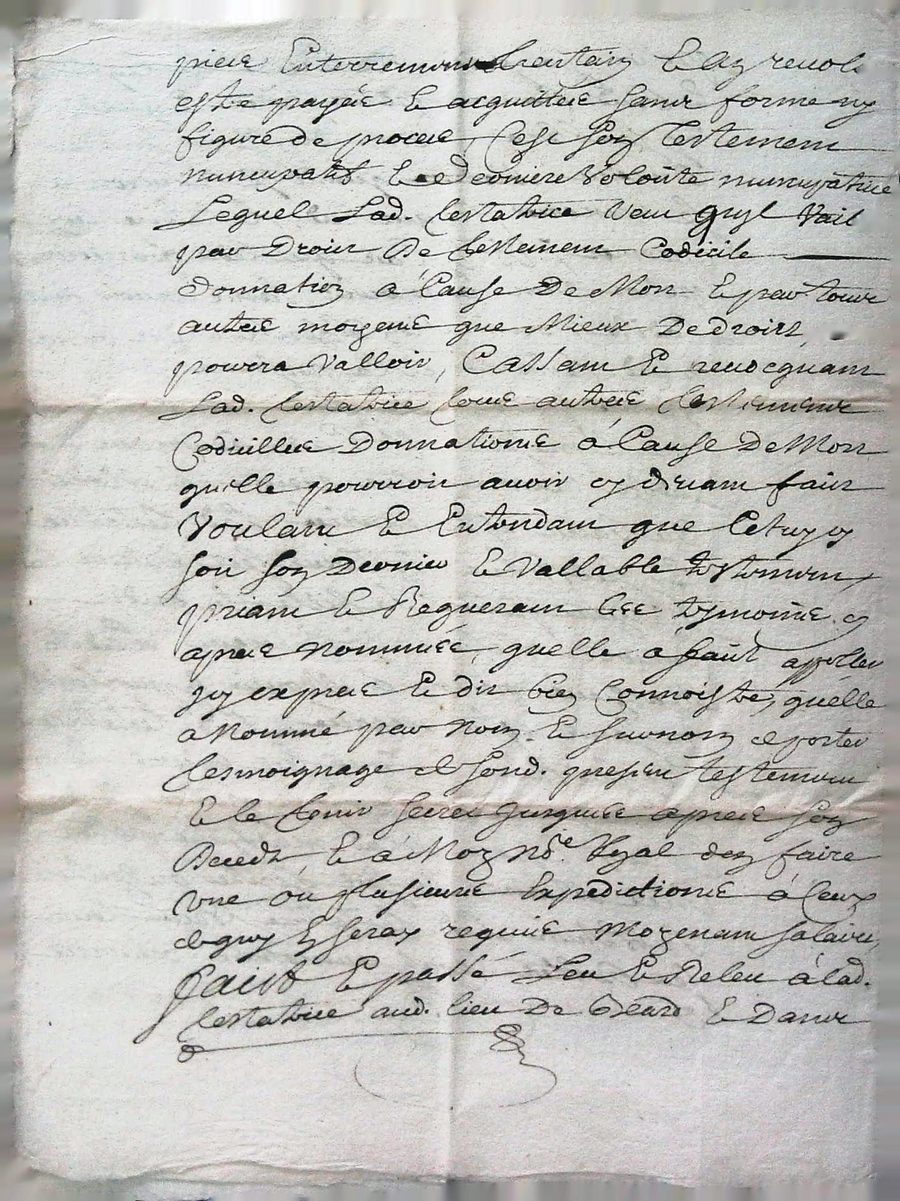 pries Enterremens
este payée Et acquittée sans forme ny
figure de proces, C'est son testement
nuncupatif Et derniere Volonte nuncupative
Lequel Lad. testatrice Veut quyl Vail
par Droit De testement Codicile
Donnation à Cause De Mort Et par tous
autres moyens que Mieux De droits
pourra Valloir, Cassant Et revocquant
Lad. testatrice tous autres testements
Codicilles Donnations à Cause De Mort
quelle pourroit avoir cy devant faits
Voulant Et Entendant que Cetuy cy
soit son Dernier Et Vallable testement
priant Et Requerant les tesmoins cy
apres nommés, quelle à faits appeller
icy expres Et dit bien Connoistre, quelle
a Nommé par Nom Et surnom de porter
tesmoignage de sond. present testement
Et le tenir secret jusques apres son
Deceds, Et à Moy Nre. Royal den faire
une ou plusieurs Expeditions à Ceux
de quy Il seray requis moyenant salaire,
Fait Et passé Leu Et Releu à lad.
testatrice aud. lieu De Et Dans